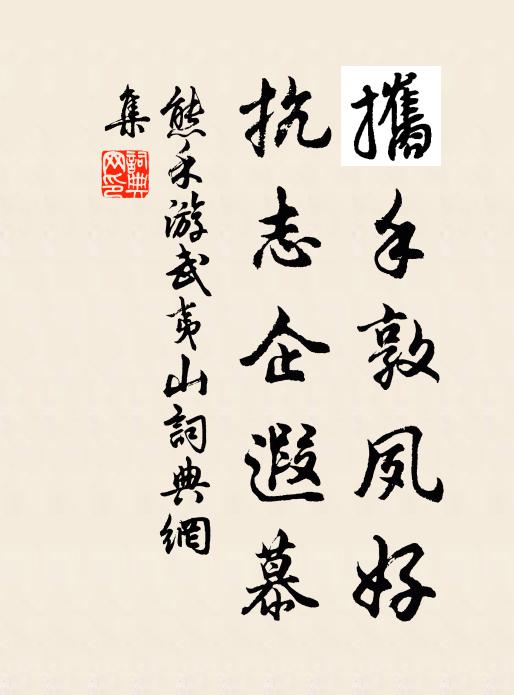 攜手敦夙好
抗志企遐慕
熊禾游武夷山詞典網
集
詞典网印